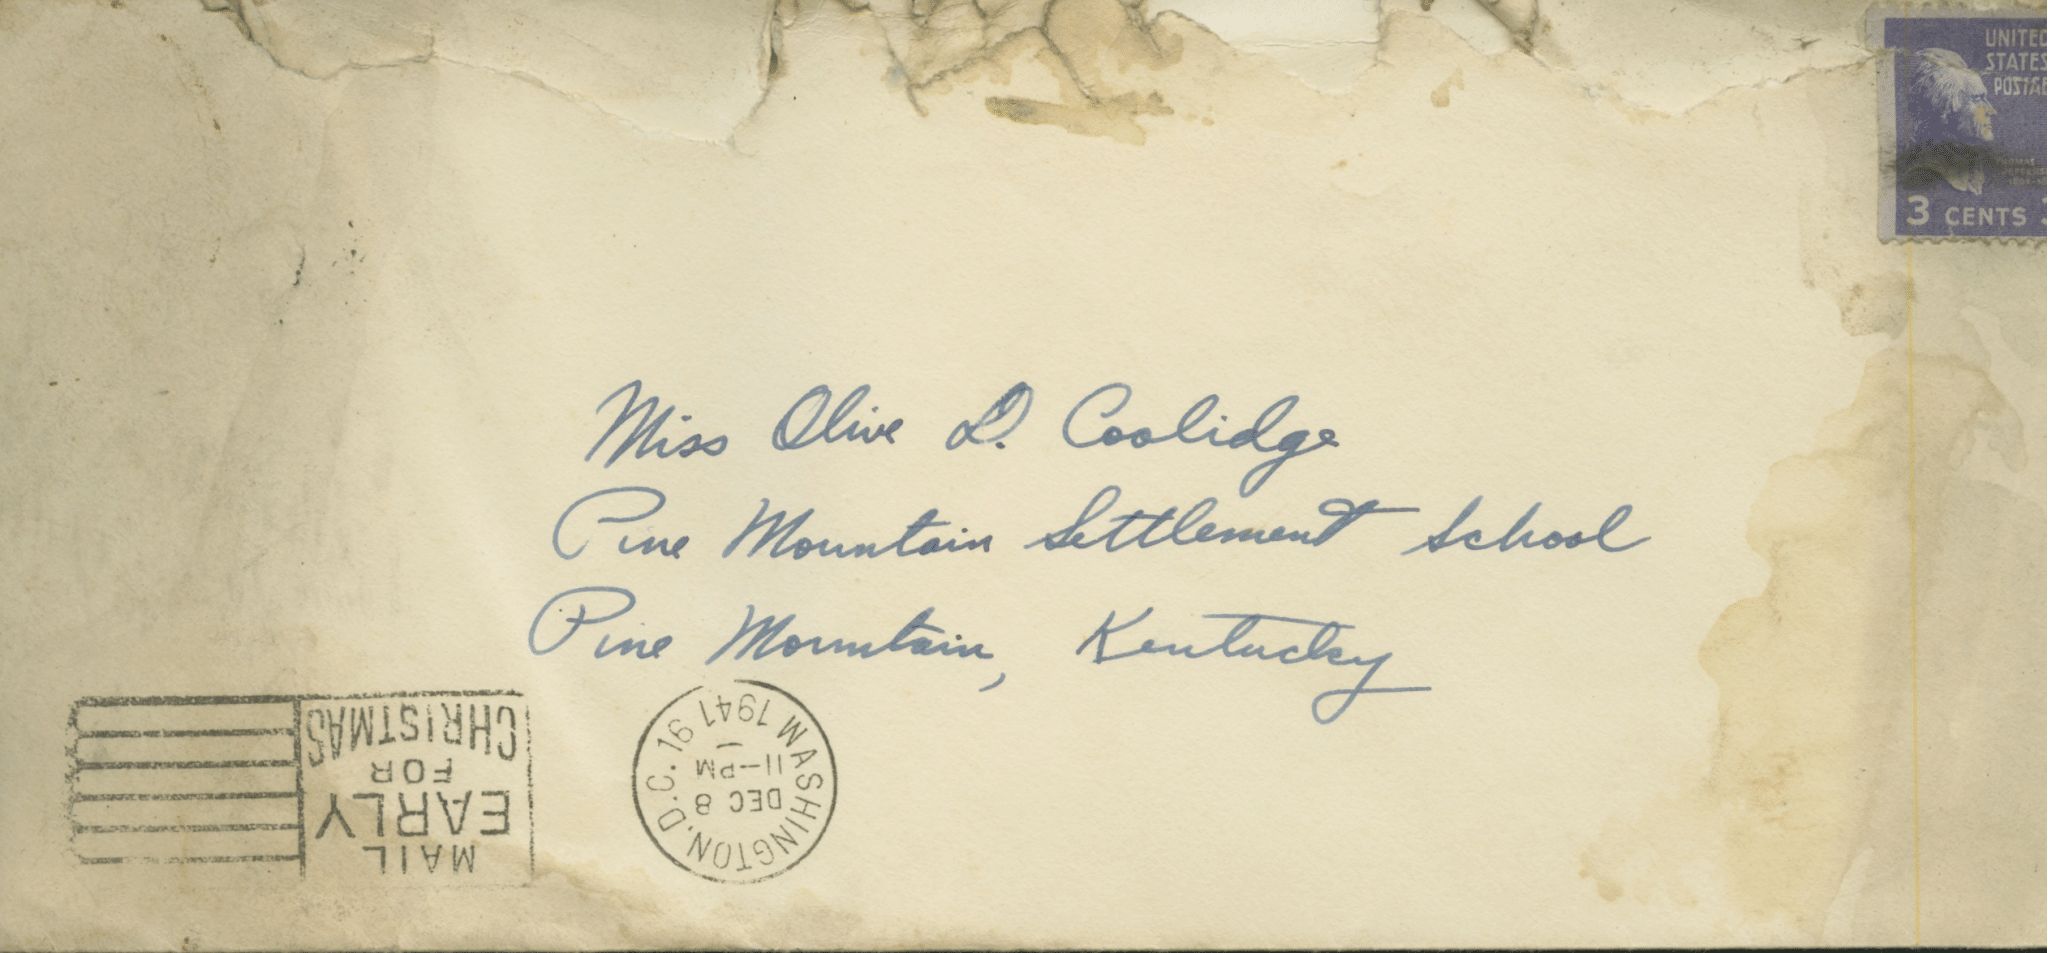 UNITED
STATES
POSTAGE
THOMAS
JEFFERSON
3 CENTS 3
Miss Olive D. Coolidge
Pine Mountain Settlement School
Pine Mountain, Kentucky
MAIL
EARLY
FOR
CHRISTMAS
WASHINGTON, D.C. 16
DEC 8
11-PM
1941